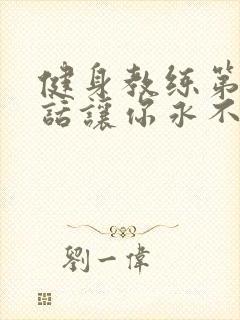 健身教练第
話讓你永不
劉一偉